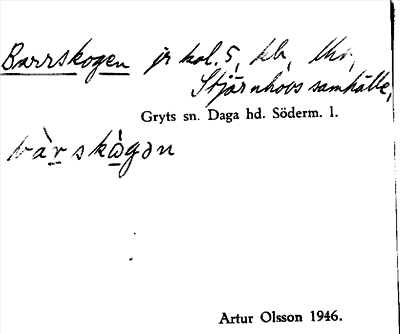 Barrskogen jr kol. 5, hb,
Stjärnhovs samhälle,
Gryts sn. Daga hd. Söderm. l.
bàrskògən
Artur Olsson 1946.